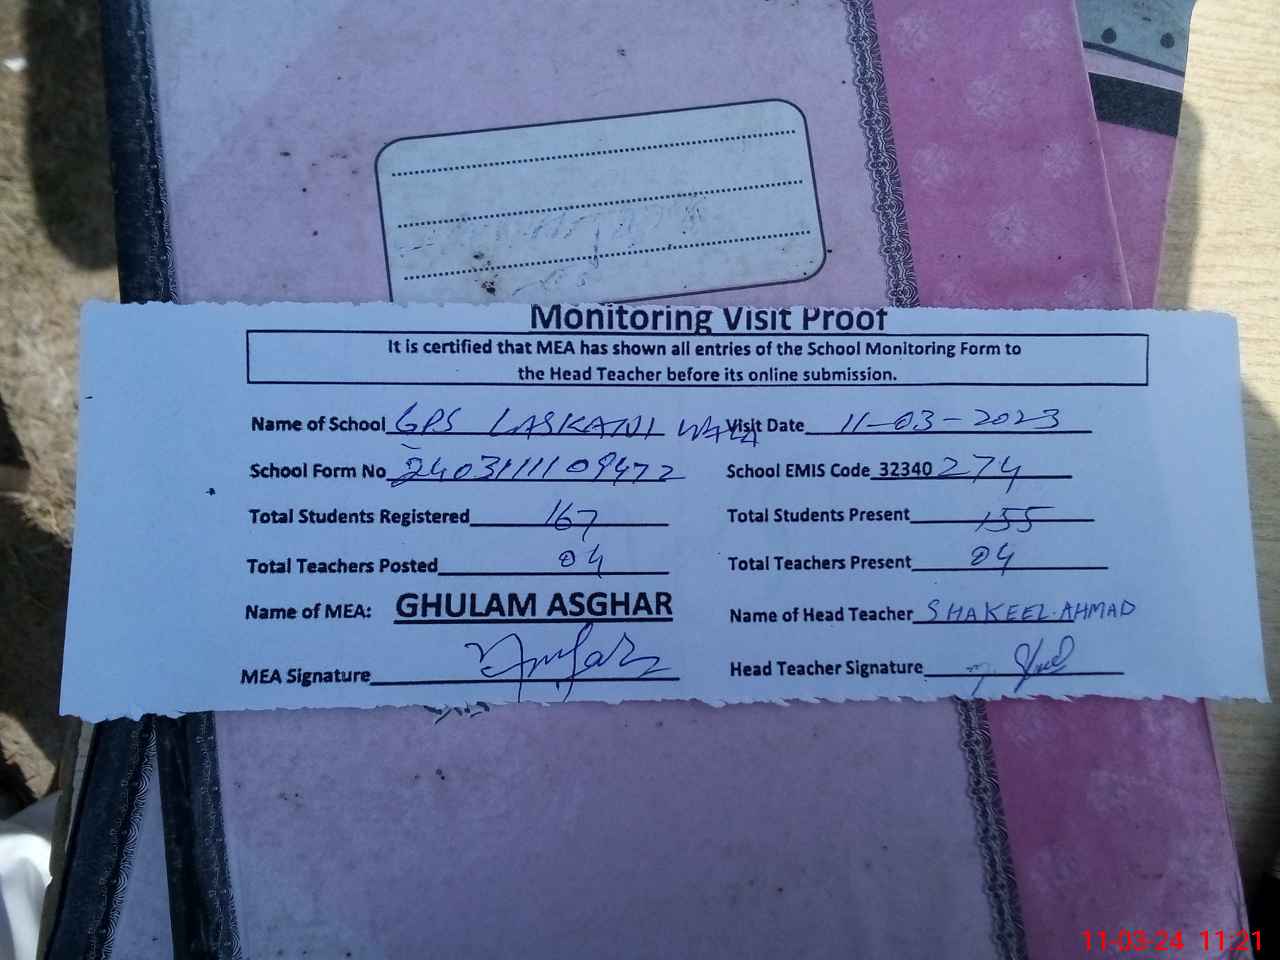 Monitoring Visit Proof
It is certified that MEA has shown all entries of the School Monitoring Form to
the Head Teacher before its online submission.
Name of School GPS LASKANI WALA Visit Date 11-03-2023
School Form No 2403111109472 School EMIS Code 32340 274
Total Students Registered 167 Total Students Present 155
Total Teachers Posted 04 Total Teachers Present 04
Name of MEA: GHULAM ASGHAR Name of Head Teacher SHAKEEL AHMAD
MEA Signature Head Teacher Signature
11-03-24 11:21